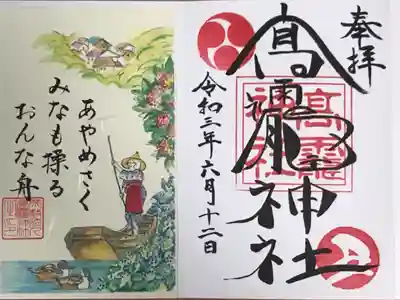 奉拝
髙龗神社
高龗
神社
令和三年六月十二日
あやめさく
みなも操る
おんな舟